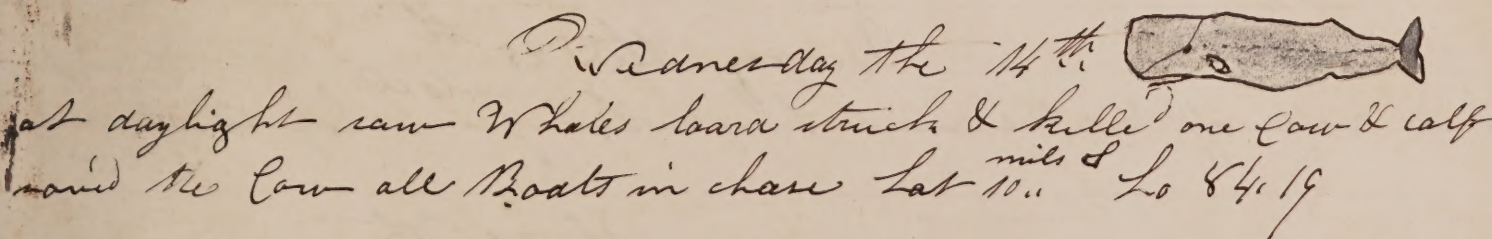 Wednesday the 14th
at daylight saw Whales Loard struck & killed one Cow & calf
saved the Cow all Boats in chase Lat 10.. mils S Lo 84.19